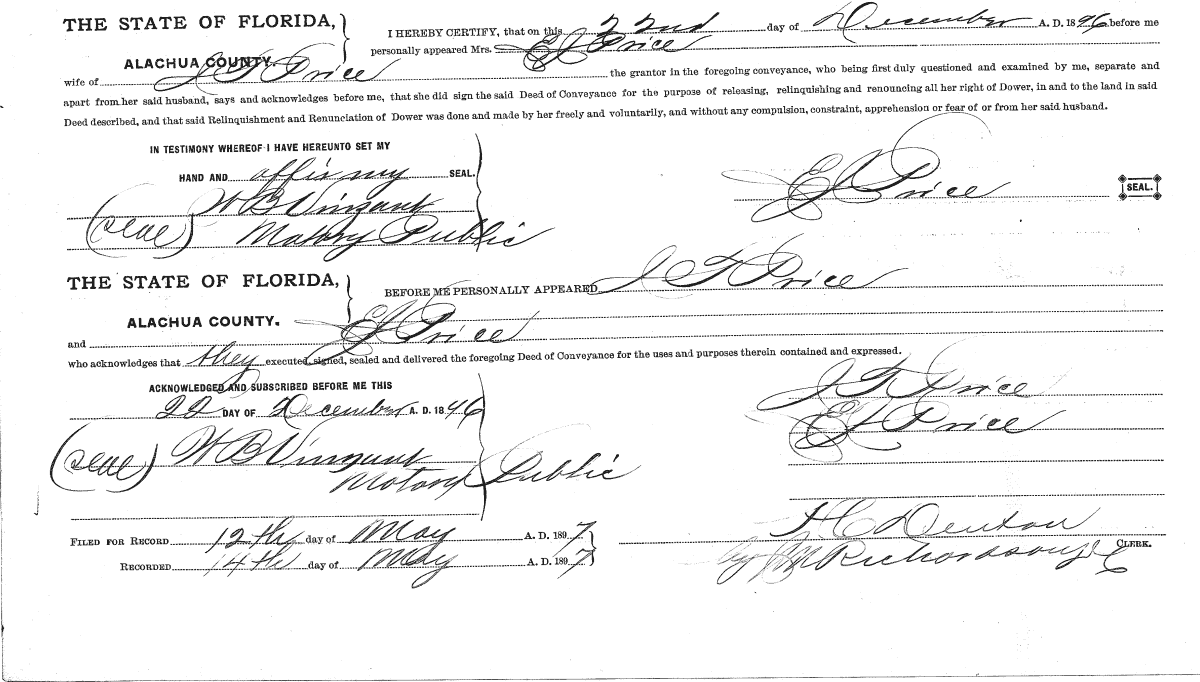 THE STATE OF FLORIDA,
ALACHUA COUNTY.
I HEREBY CERTIFY, that on this 22nd day of December A. D. 1896 before me
personally appeared Mrs. E J Price
wife of J T Price the grantor in the foregoing conveyance, who being first duly questioned and examined by me, separate and
apart from her said husband, says and acknowledges before me, that she did sign the said Deed of Conveyance for the purpose of releasing, relinquishing and renouncing all her right of Dower, in and to the land in said
Deed described, and that said Relinquishment and Renunciation of Dower was done and made by her freely and voluntarily, and without any compulsion, constraint, apprehension or fear of or from her said husband.
IN TESTIMONY WHEREOF I HAVE HEREUNTO SET MY
HAND AND affix my SEAL.
W B Vinzant
(seal) Notary Public
E J Price SEAL.
THE STATE OF FLORIDA,
ALACHUA COUNTY.
BEFORE ME PERSONALLY APPEARED J T Price
and E J Price
who acknowledges that they executed, signed, sealed and delivered the foregoing Deed of Conveyance for the uses and purposes therein contained and expressed.
ACKNOWLEDGED AND SUBSCRIBED BEFORE ME THIS
22 DAY OF December A. D. 1896
(seal) W B Vinzant
Notary Public
J T Price
E J Price
FILED FOR RECORD 12th day of May A. D. 1897
RECORDED 14th day of May A. D. 1897
H C Denton
CLERK.
by Richardson